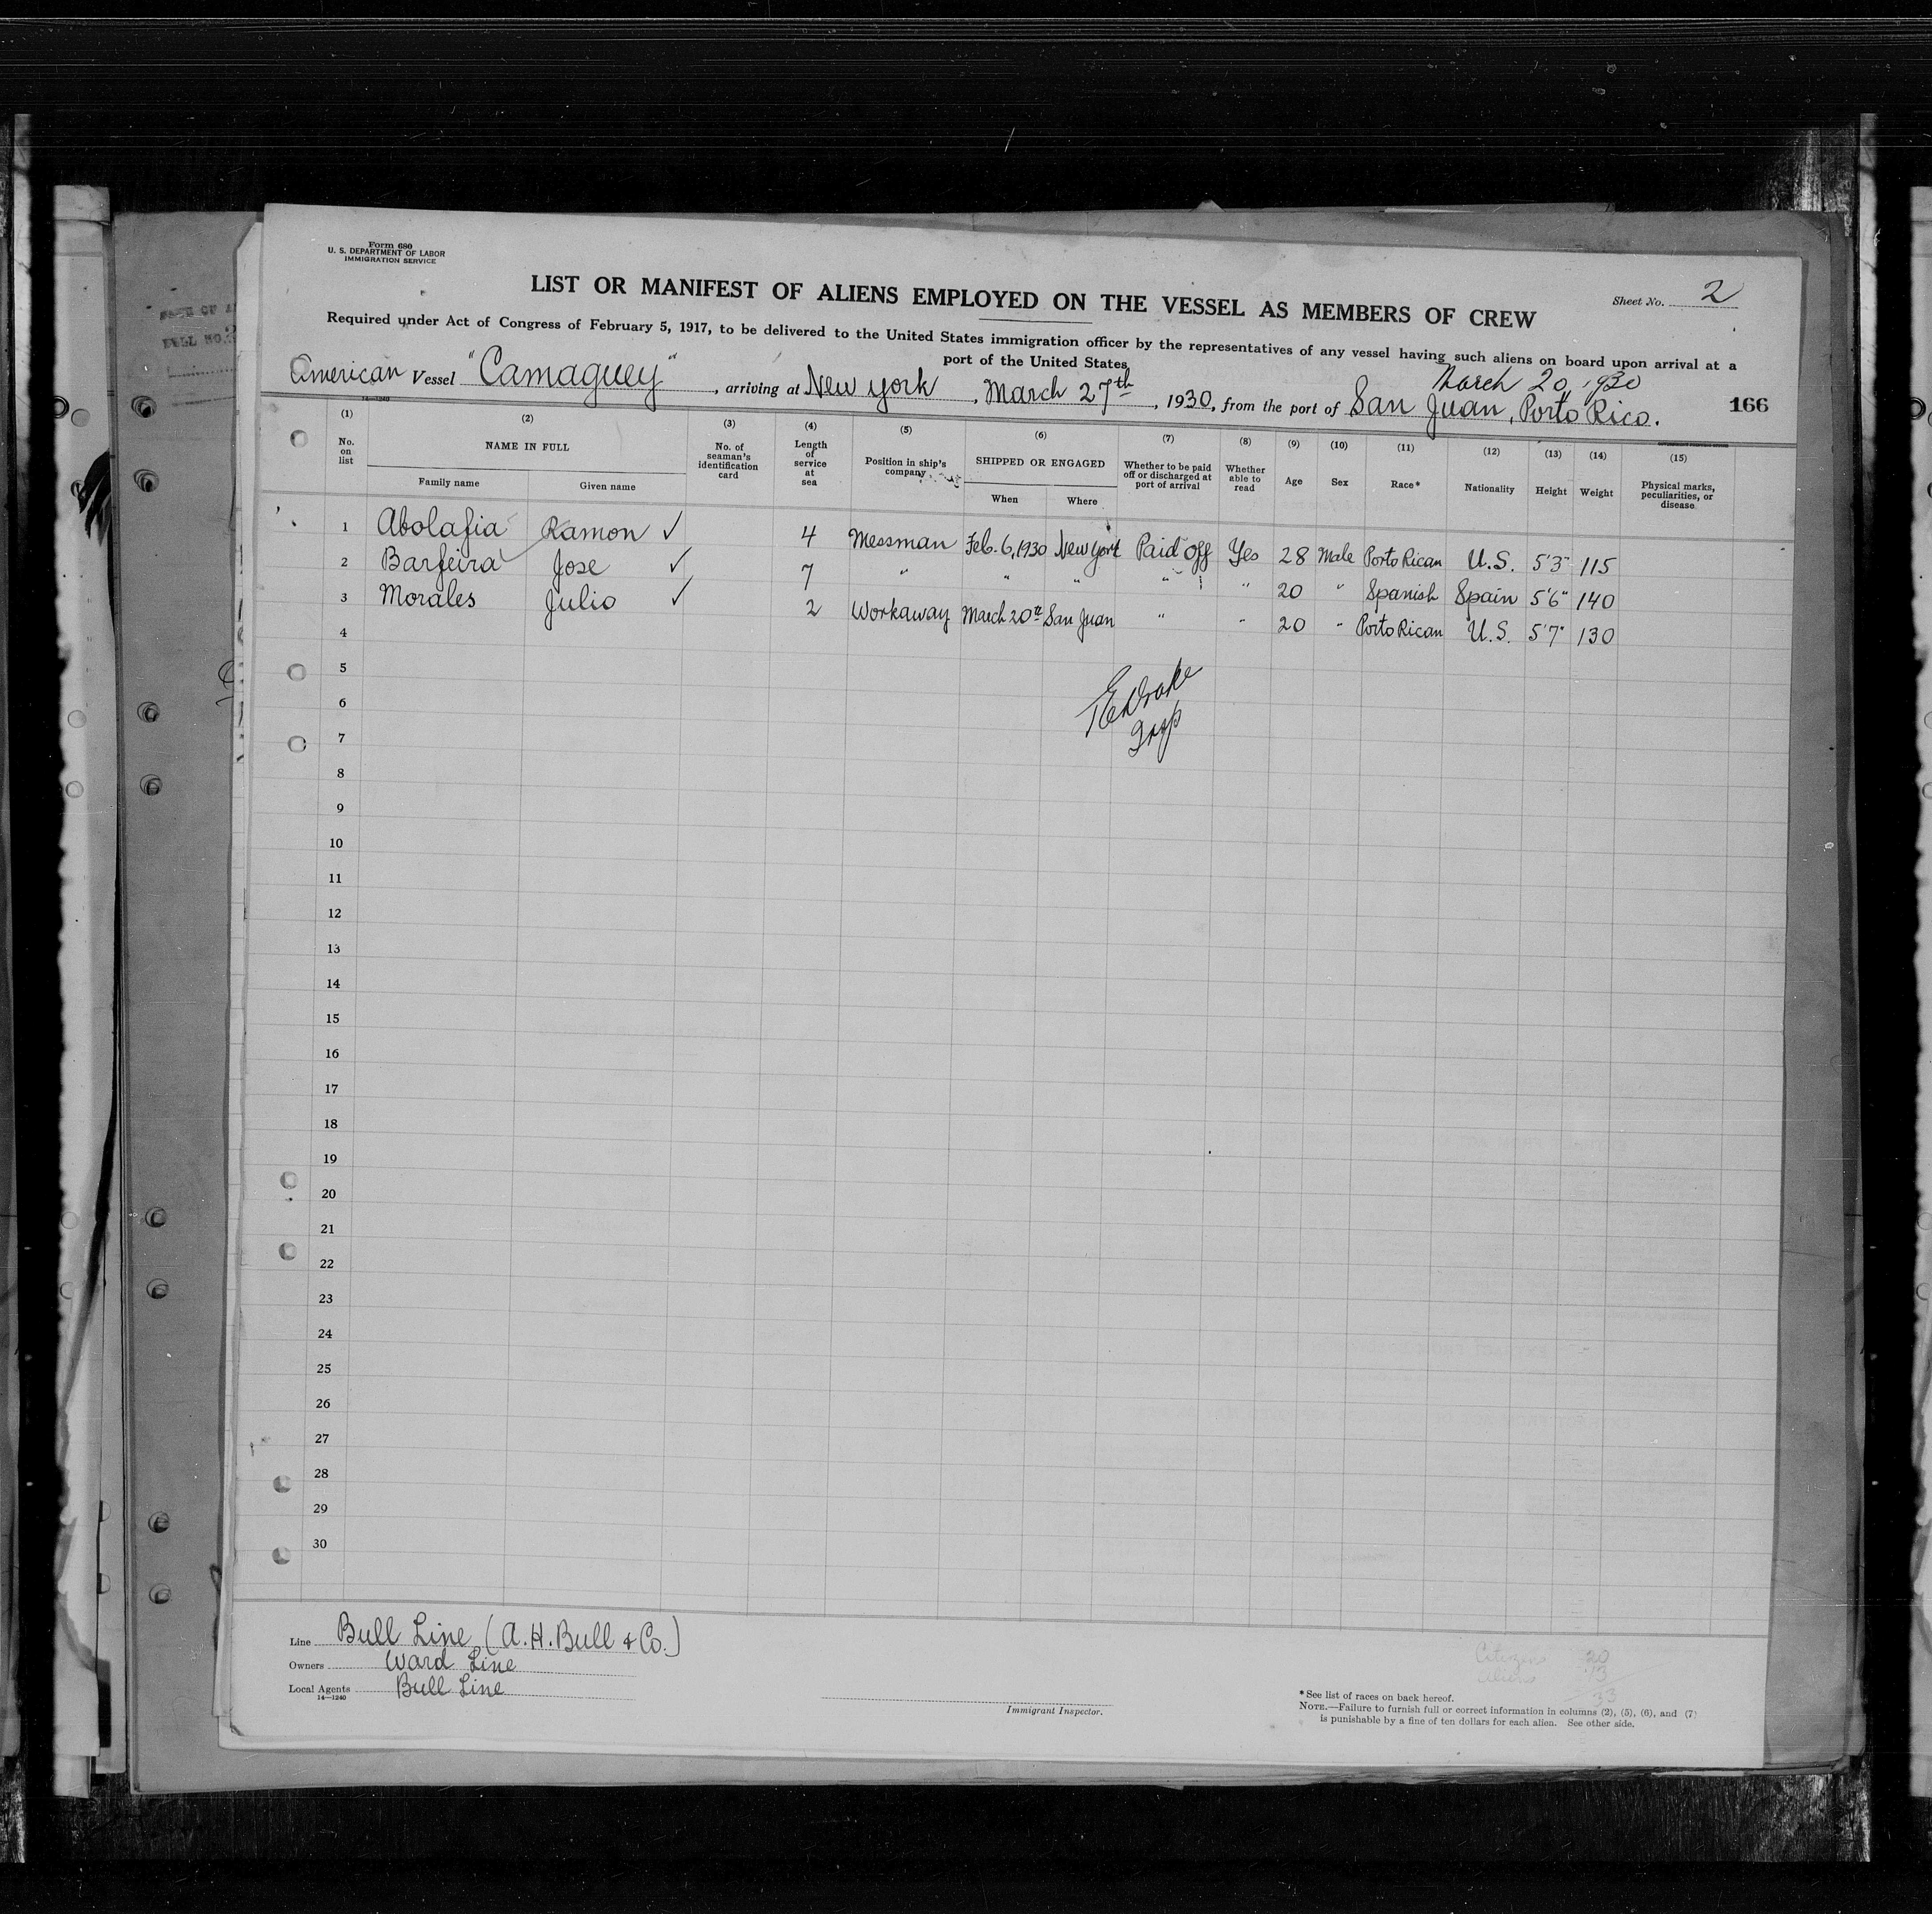 Form 680
U. S. DEPARTMENT OF LABOR
IMMIGRATION SERVICE
LIST OR MANIFEST OF ALIENS EMPLOYED ON THE VESSEL AS MEMBERS OF CREW
Sheet No. 2
Required under Act of Congress of February 5, 1917, to be delivered to the United States immigration officer by the representatives of any vessel having such aliens on board upon arrival at a
port of the United States
March 20, 1930
American Vessel "Camaguey", arriving at New York, March 27th, 1930, from the port of San Juan, Porto Rico.
166
14—1240
(1) (2) (3) (4) (5) (6) (7) (8) (9) (10) (11) (12) (13) (14) (15)
No. on list
NAME IN FULL
Family name Given name
No. of seaman's identification card
Length of service at sea
Position in ship's company
SHIPPED OR ENGAGED
When Where
Whether to be paid off or discharged at port of arrival
Whether able to read
Age
Sex
Race*
Nationality
Height
Weight
Physical marks, peculiarities, or disease
1 Abolafia Ramon ✓ 4 Messman Feb. 6, 1930 New York Paid off Yes 28 Male Porto Rican U.S. 5'3" 115
2 Barfeira Jose ✓ 7 " " " " " 20 " Spanish Spain 5'6" 140
3 Morales Julio ✓ 2 Workaway March 20th San Juan " " 20 " Porto Rican U.S. 5'7" 130
4
5
6
7
8
9
10
11
12
13
14
15
16
17
18
19
20
21
22
23
24
25
26
27
28
29
30
Drake
Insp
Line Bull Line (A. H. Bull & Co.)
Owners Ward Line
Local Agents Bull Line
14—1240
Immigrant Inspector.
Citizens 20
Aliens 13
33
* See list of races on back hereof.
NOTE.—Failure to furnish full or correct information in columns (2), (5), (6), and (7)
is punishable by a fine of ten dollars for each alien. See other side.